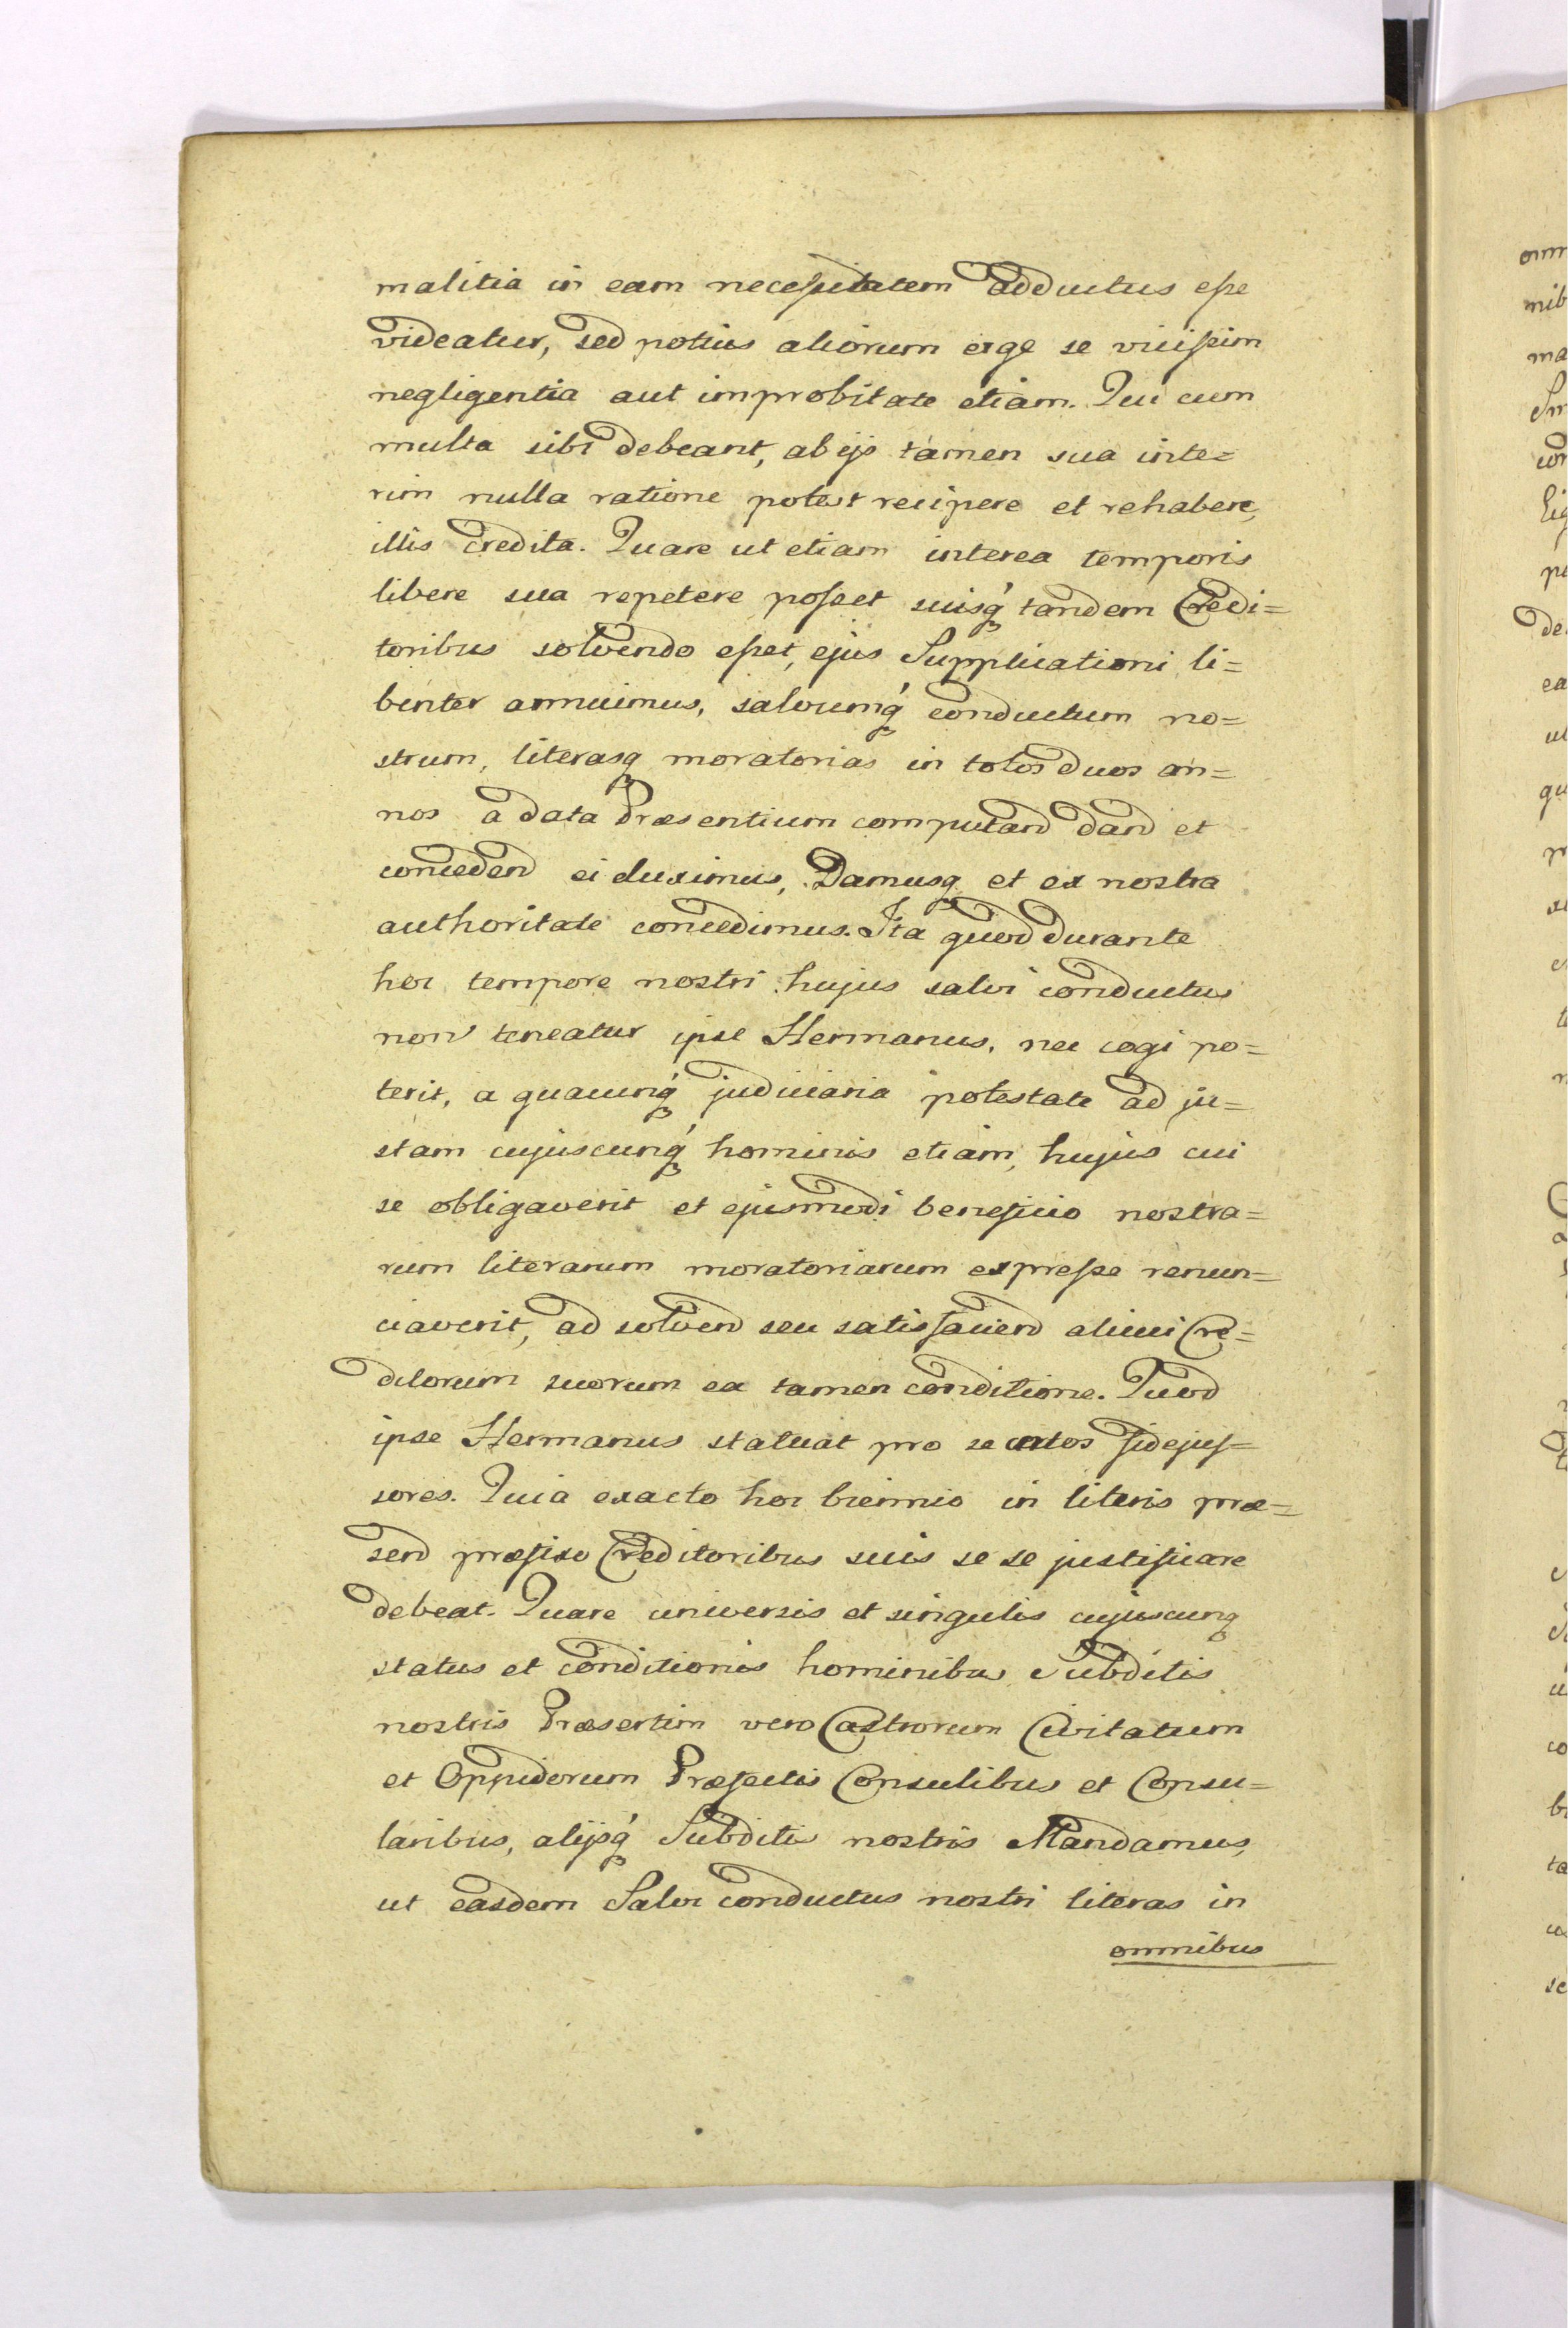 malitia in eam necessitatem adductus esse
videatur, sed potius aliorum erge se vicissim
negligentia aut improbitate etiam. Qui cum
multa sibi debeant, ab ijs tamen sua inte=
rim nulla ratione potest recipere et rehabere,
illis credita. Quare ut etiam interea temporis
libere sua repetere posset suisq́ tandem Credi=
toribus solvendo esset, ejus Supplicationi li=
benter annuimus, salvumq́ conductum no=
strum, literasq moratorias in totos duos an=
nos a data Præsentium computand dand et
conceden ei duximus, Damusq et ex nostra
authoritate concedimus. Ita quod durante
hoc tempore nostri hujus salvi conductus
non teneatur ipse Hermanus, nec cogi po=
terit, a quacunq́ judiciaria potestate ad ju=
stam cujuscunq́ hominis etiam, hujus cui
se obligaverit et ejusmodi beneficio nostra=
rum literarum moratoriarum expresse renun=
ciaverit, ad solvend seu satisfaciend alicui Cre=
ditorum suorum ea tamen conditione. Quod
ipse Hermanus statuat pro se certos fidejus=
sores. Quia exacto hoc biennio in literis præ=
send præfixo Creditoribus suis se se justificare
debeat. Quare universis et singulis cujuscunq
status et conditionis hominibus Subditis
nostris Præsertim vero Castrorum Civitatum
et Oppidorum Præfectis Consulibus et Consu=
laribus, alijsq́ Subditis nostris Mandamus,
ut easdem Salvi conductus nostri literas in
omnibus